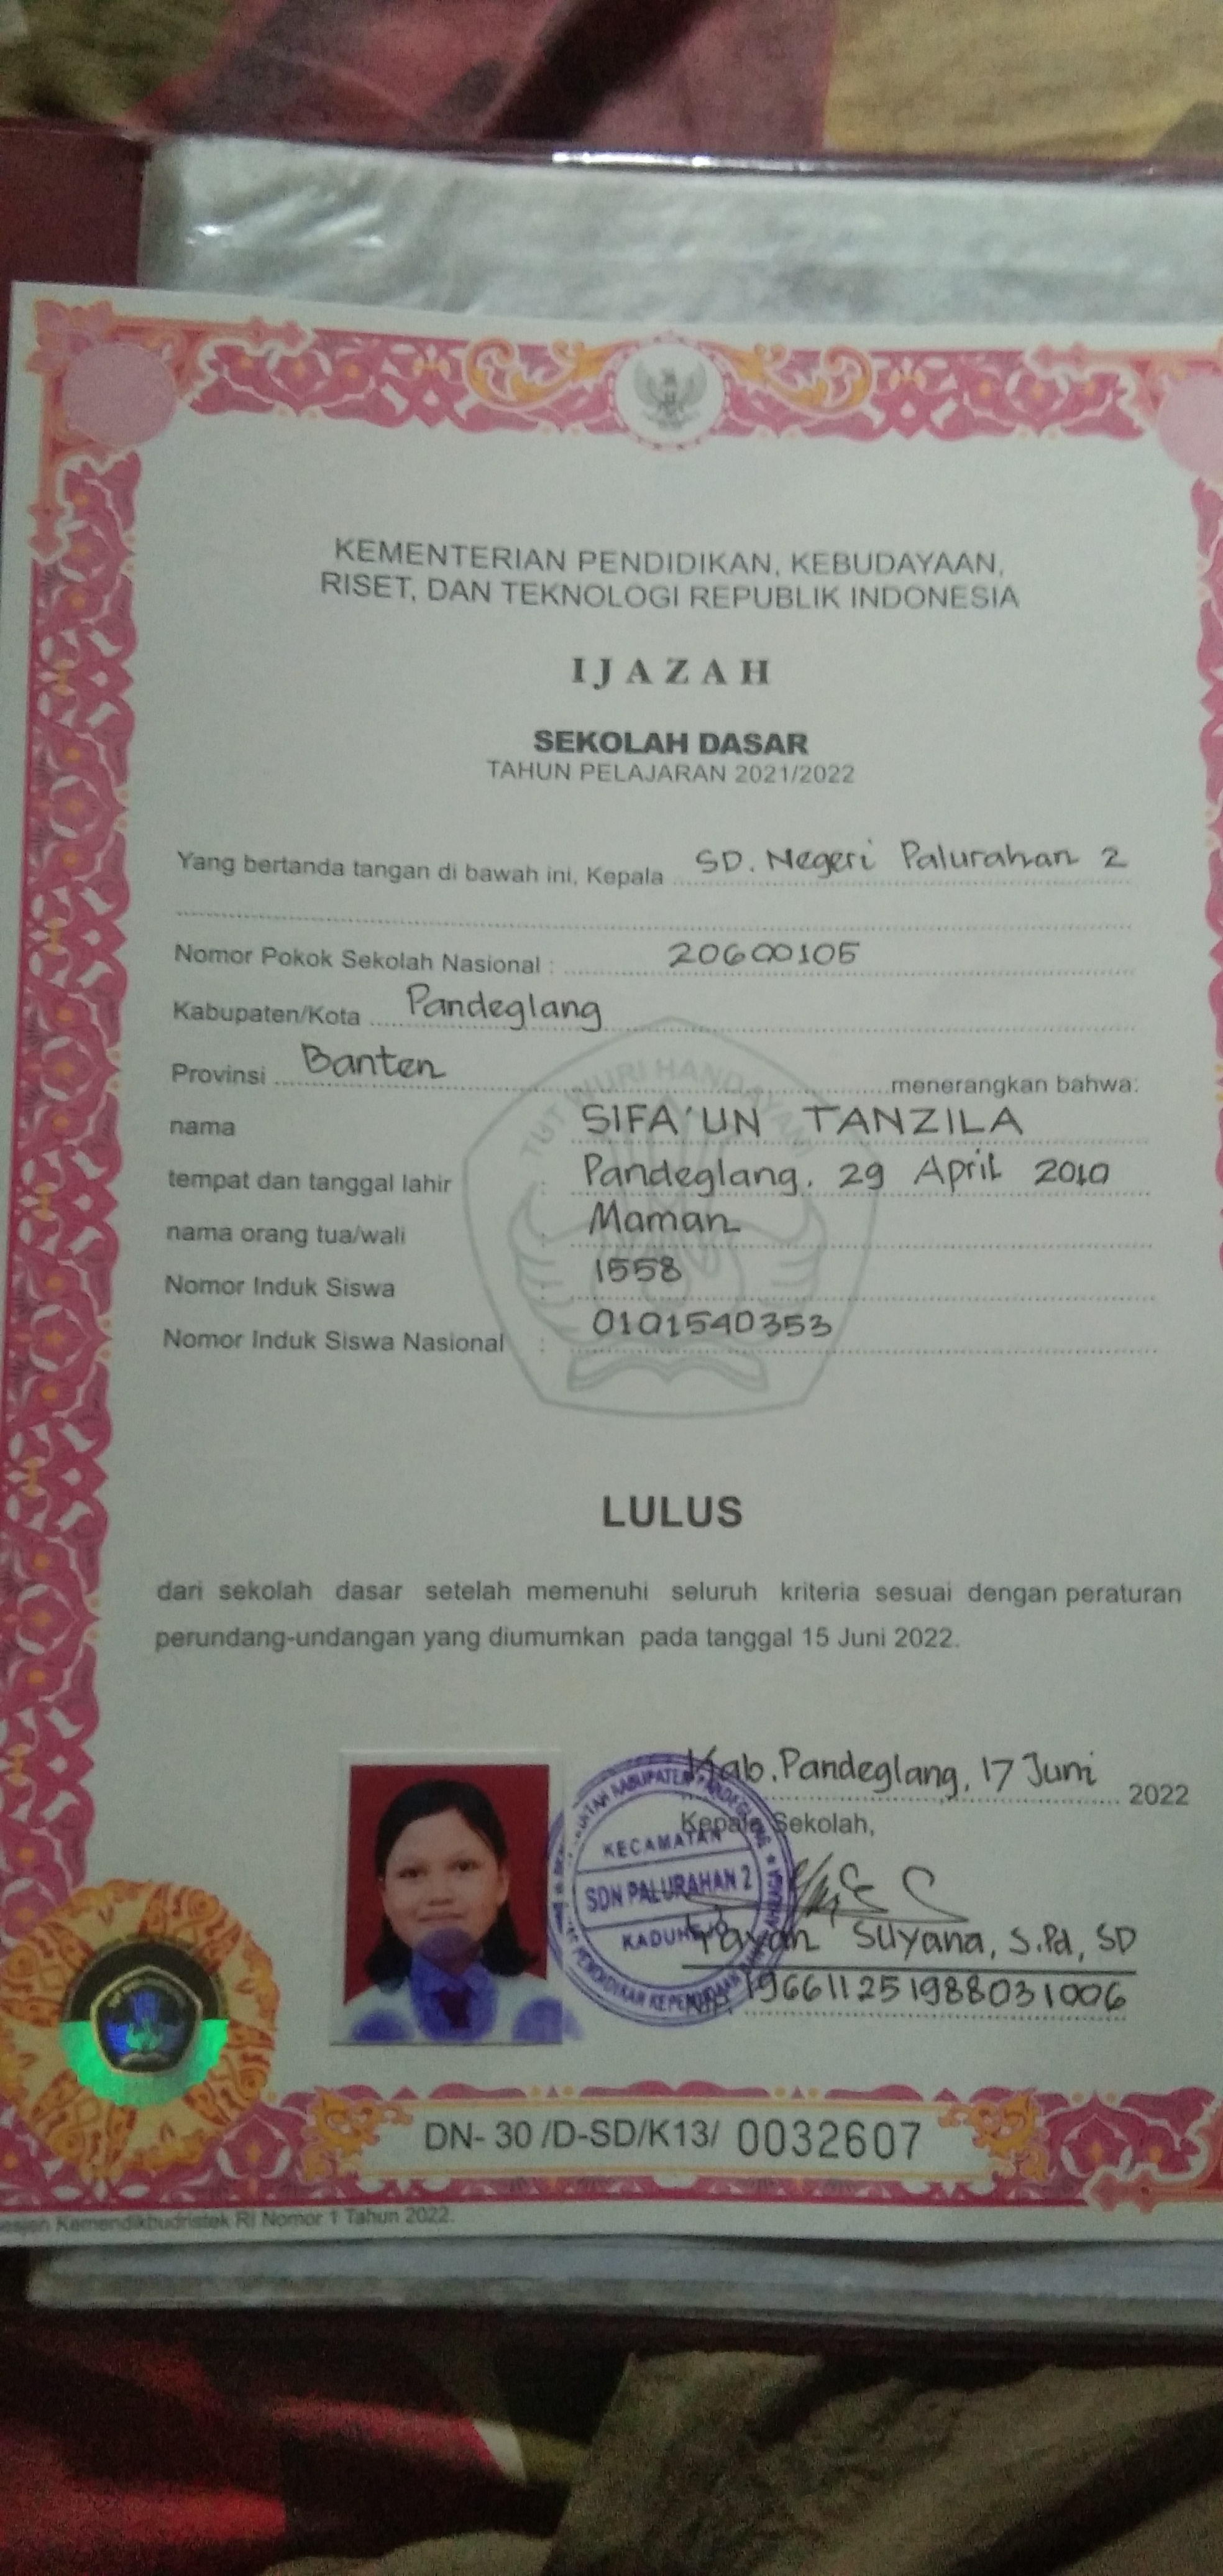 KEMENTERIAN PENDIDIKAN, KEBUDAYAAN,
RISET, DAN TEKNOLOGI REPUBLIK INDONESIA
IJAZAH
SEKOLAH DASAR
TAHUN PELAJARAN 2021/2022
Yang bertanda tangan di bawah ini, Kepala SD. Negeri Palurahan 2
Nomor Pokok Sekolah Nasional : 20600105
Kabupaten/Kota Pandeglang
Provinsi Banten menerangkan bahwa:
nama SIFA'UN TANZILA
tempat dan tanggal lahir : Pandeglang, 29 April 2010
nama orang tua/wali : Maman
Nomor Induk Siswa : 1558
Nomor Induk Siswa Nasional : 0101540353
TUT WURI HANDAYANI
LULUS
dari sekolah dasar setelah memenuhi seluruh kriteria sesuai dengan peraturan
perundang-undangan yang diumumkan pada tanggal 15 Juni 2022.
Kab. Pandeglang, 17 Juni 2022
Kepala Sekolah,
KECAMATAN
SDN PALURAHAN 2
Yayan Suyana, S.Pd, SD
196611251988031006
DN- 30 /D-SD/K13/ 0032607
Kemendikbudristek RI Nomor 1 Tahun 2022.